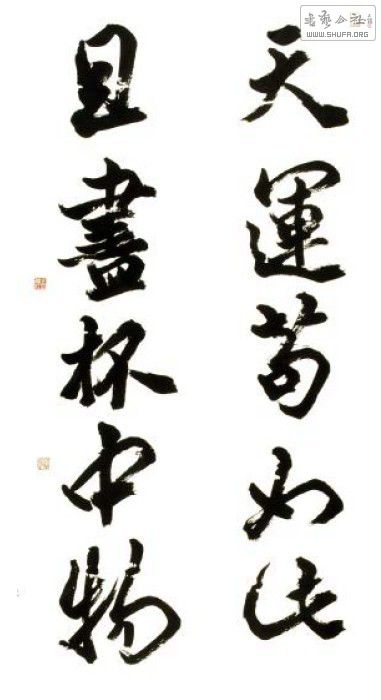 天運苟如此
且盡杯中物
書藝公社
WWW.SHUFA.ORG